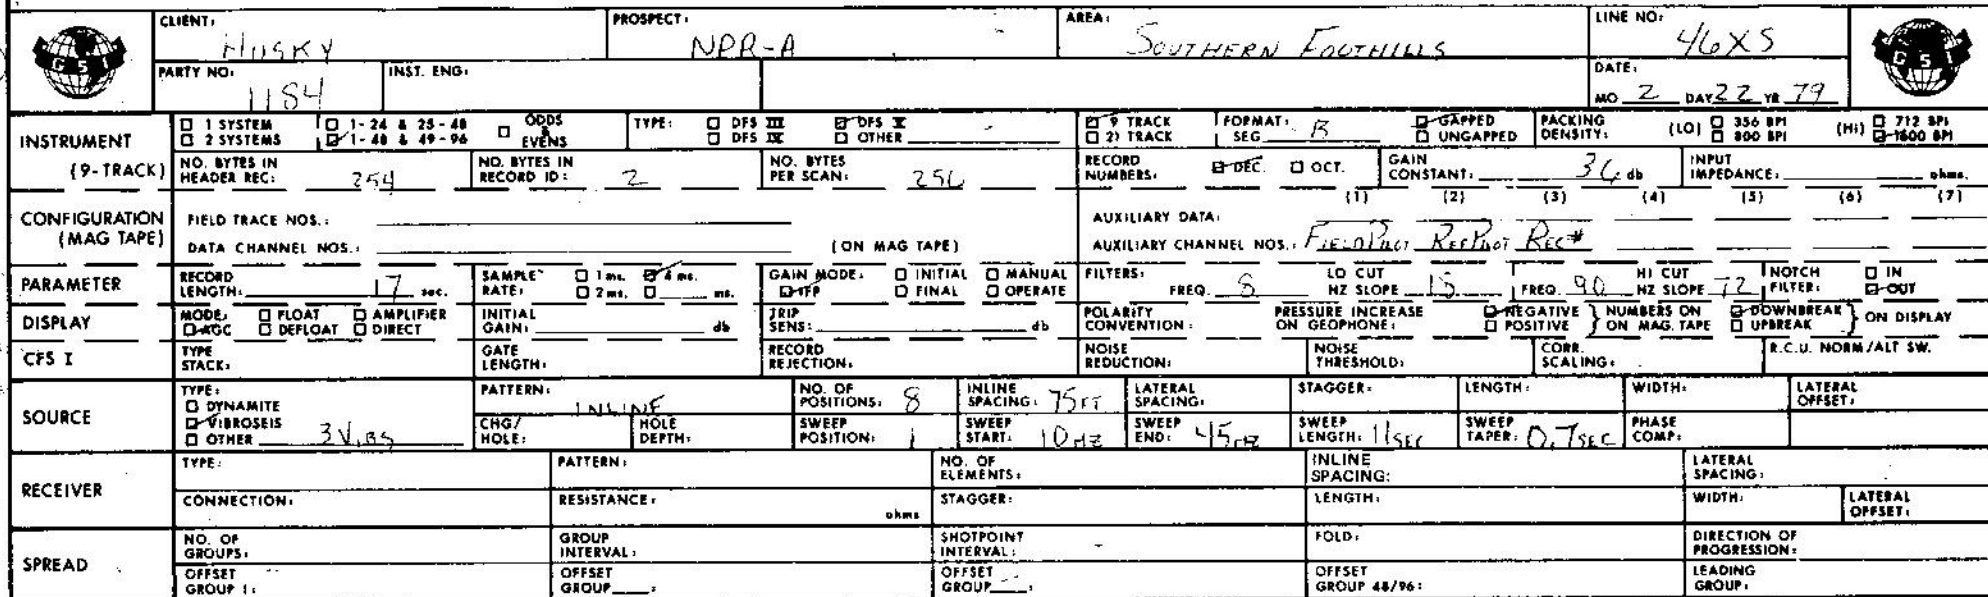 CLIENT: HUSKY PROSPECT: NPR-A AREA: SOUTHERN FOOTHILLS LINE NO: 46XS
GSI GSI
PARTY NO: 1184 INST. ENG: DATE:
MO 2 DAY 22 YR 79
INSTRUMENT (9-TRACK)
☐ 1 SYSTEM ☐ 1-24 & 25-48 ☐ ODDS & EVENS TYPE: ☐ DFS III ☑ DFS V ☑ 9 TRACK FORMAT: SEG B ☑ GAPPED PACKING DENSITY: (LO) ☐ 356 BPI (HI) ☐ 712 BPI
☐ 2 SYSTEMS ☑ 1-48 & 49-96 ☐ DFS IV ☐ OTHER ☐ 21 TRACK ☐ UNGAPPED ☐ 800 BPI ☑ 1600 BPI
NO. BYTES IN HEADER REC: 254 NO. BYTES IN RECORD ID: 2 NO. BYTES PER SCAN: 256 RECORD NUMBERS: ☑ DEC. ☐ OCT. GAIN CONSTANT: 36 db INPUT IMPEDANCE: ohms.
CONFIGURATION (MAG TAPE)
(1) (2) (3) (4) (5) (6) (7)
FIELD TRACE NOS.: AUXILIARY DATA:
DATA CHANNEL NOS.: (ON MAG TAPE) AUXILIARY CHANNEL NOS.: FIELD PILOT REF PILOT REC#
PARAMETER RECORD LENGTH: 17 sec. SAMPLE RATE: ☐ 1 ms. ☑ 4 ms. ☐ 2 ms. ☐ ms. GAIN MODE: ☐ INITIAL ☐ MANUAL ☑ IFP ☐ FINAL ☐ OPERATE FILTERS: FREQ. 8 LO CUT HZ SLOPE 18 FREQ. 90 HI CUT HZ SLOPE 72 NOTCH FILTER: ☐ IN ☑ OUT
DISPLAY MODE: ☐ FLOAT ☐ AMPLIFIER ☑ AGC ☐ DEFLOAT ☐ DIRECT INITIAL GAIN: db TRIP SENS: db POLARITY CONVENTION: PRESSURE INCREASE ON GEOPHONE: ☑ NEGATIVE ☐ POSITIVE } NUMBERS ON MAG. TAPE ☑ DOWNBREAK ☐ UPBREAK } ON DISPLAY
CFS I TYPE STACK: GATE LENGTH: RECORD REJECTION: NOISE REDUCTION: NOISE THRESHOLD: CORR. SCALING: R.C.U. NORM/ALT SW.
SOURCE TYPE: ☐ DYNAMITE ☑ VIBROSEIS ☐ OTHER 3 VIBS
PATTERN: INLINE NO. OF POSITIONS: 8 INLINE SPACING: 75FT LATERAL SPACING: STAGGER: LENGTH: WIDTH: LATERAL OFFSET:
CHG/HOLE: HOLE DEPTH: SWEEP POSITION: 1 SWEEP START: 10HZ SWEEP END: 45HZ SWEEP LENGTH: 11SEC SWEEP TAPER: 0.7SEC PHASE COMP:
RECEIVER TYPE: PATTERN: NO. OF ELEMENTS: INLINE SPACING: LATERAL SPACING:
CONNECTION: RESISTANCE: ohms STAGGER: LENGTH: WIDTH: LATERAL OFFSET:
SPREAD NO. OF GROUPS: GROUP INTERVAL: SHOTPOINT INTERVAL: FOLD: DIRECTION OF PROGRESSION:
OFFSET GROUP 1: OFFSET GROUP ___: OFFSET GROUP ___: OFFSET GROUP 48/96: LEADING GROUP: